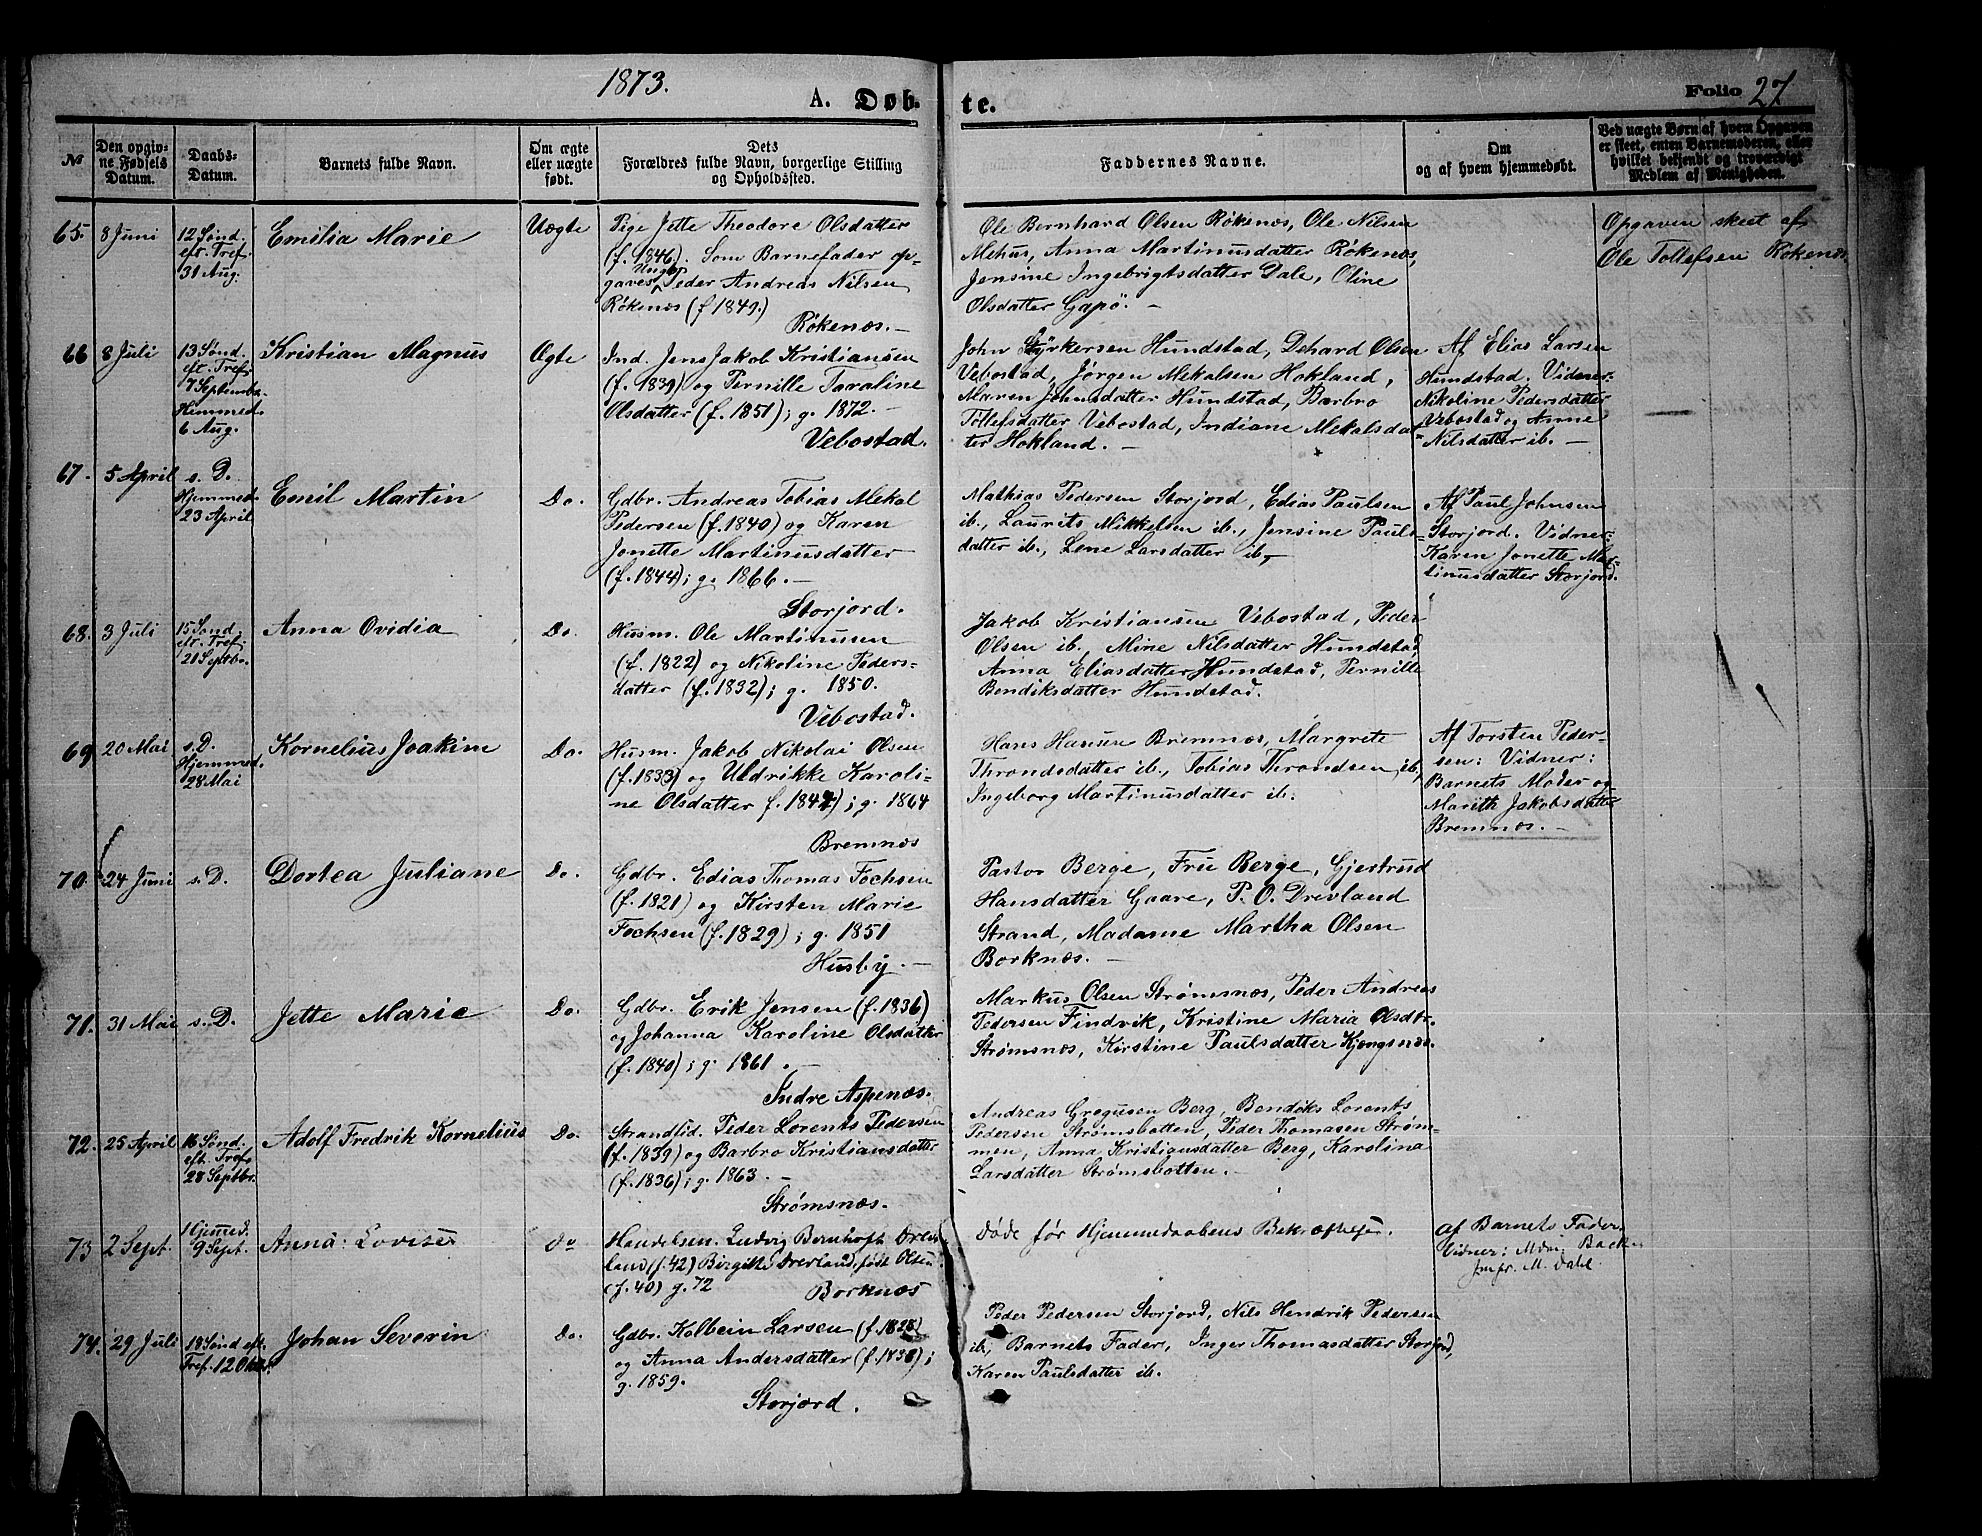 1873.
A. Døb-
te.
Folio 27
№
Den opgiv-
ne Fødsels
Datum.
Daabs-
Datum.
Barnets fulde Navn.
Om ægte
eller uægte
født.
Dets
Forældres fulde Navn, borgerlige Stilling
og Opholdssted.
Faddernes Navne.
Om
og af hvem hjemmedøbt.
Ved uægte Børn af hvem Opgaven
er skeet, enten Barnemoderen, eller
hvilket bekjendt og troværdigt
Medlem af Menigheden.
65. 8 Juni
12 Sønd.
eft. Tref.
31 Aug.
Emilia Marie
Uægte
Pige Jette Theodore Olsdatter
(f. 1846). Som Barnefader op-
gaves Ungk. Peder Andreas Nilsen
Røkenæs (f. 1849.)
Røkenæs. —
Ole Bernhard Olsen Røkenæs, Ole Nilsen
Mehus, Anna Martinusdatter Røkenæs,
Jensine Ingebrigtsdatter Dale, Oline
Olsdatter Gapø. —
Opgaven skeet af
Ole Tollefsen Røkenæs
66 8 Juli
13 Sønd.
eft. Tref.
7 Septembr.
Hjemmed.
6 Aug.
Kristian Magnus
Ægte
Ind. Jens Jakob Kristiansen
(f. 1839) og Pernille Taraline
Olsdatter (f. 1851); g. 1872. —
Vebostad.
John Styrkersen Hundstad, Dehard Olsen
Vebostad, Jørgen Mekalsen Hokland,
Maren Johnsdatter Hundstad, Barbro
Tollefsdatter Vebostad, Indiane Mekalsdat-
ter Hokland. —
Af Elias Larsen
Hundstad. Vidner:
Nikoline Pedersdatter
Vebostad og Anne
Nilsdatter ib. —
67. 5 April
s. D.
Hjemmed.
23 April
Emil Martin
Do.
Gdbr. Andreas Tobias Mekal
Pedersen (f. 1840) og Karen
Jonette Martinusdatter
(f. 1844); g. 1866. —
Storjord.
Mathias Pedersen Storjord, Edias Paulsen
ib., Laurits Mikkelsen ib., Jensine Pauls-
datter ib., Lene Larsdatter ib. —
Af Paul Johnsen
Storjord. Vidner:
Karen Jonette Mar-
tinusdatter Storjord.
68. 3 Juli
15 Sønd.
eft. Tref.
21 Septbr.
Anna Ovidia
Do.
Husm. Ole Martinusen
(f. 1822) og Nikoline Peders-
datter (f. 1832); g. 1850.
Vebostad.
Jakob Kristiansen Vebostad, Peder
Olsen ib., Mine Nilsdatter Hundstad,
Anna Eliasdatter Hundstad, Pernille
Bendiksdatter Hundstad.
69 20 Mai
s. D.
Hjemmed.
28 Mai
Kornelius Joakim
Do.
Husm. Jakob Nikolai Olsen
(f. 1833) og Uldrikke Karoli-
ne Olsdatter f. 1844); g. 1864
Bremnæs
Hans Hansen Bremnæs, Margrete
Throndsdatter ib., Tobias Throndsen ib.,
Ingeborg Martinusdatter ib.
Af Torsten Peder-
sen: Vidner:
Barnets Moder og
Marith Jakobsdatter
Bremnæs. —
70. 24 Juni
s. D.
Dortea Juliane
Do.
Gdbr. Edias Thomas Fochsen
(f. 1821) og Kirsten Marie
Fochsen (f. 1829); g. 1851
Husby. —
Pastor Berge, Fru Berge, Gjertrud
Hansdatter Gaare, P. O. Drevland
Strand, Madame Martha Olsen
Borknæs. —
71. 31 Mai
s. D.
Jette Marie
Do.
Gdbr. Erik Jensen (f. 1836)
og Johanna Karoline Olsdatter
(f. 1840); g. 1861. —
Indre Aspenæs.
Markus Olsen Strømsnæs, Peder Andreas
Pedersen Findvik, Kristine Maria Olsdtr.
Strømsnæs, Kirstine Paulsdatter Kjengsnæs.
72. 25 April
16 Sønd.
eft. Tref.
28 Septbr.
Adolf Fredrik Kornelius
Do.
Strandsid. Peder Lorents Pedersen
(f. 1839) og Barbro Kristiansdatter
(f. 1836); g. 1863. —
Strømsnæs.
Andreas Gregusen Berg, Bendiks Lorents
Pedersen Strømsbotten, Peder Thomasen Strøm-
men, Anna Kristiansdatter Berg, Karolina
Larsdatter Strømsbotten. —
73 2 Sept.
Hjemmed.
9 Sept.
Anna Lovise
do
Handelsm. Ludvig Bernhoft Drev-
land (f. 42) Birgitte Drevland, født Olsen
(f. 40) g. 72
Borknæs
Døde før Hjemmedaabens Bekræftelse.
af Barnets Fader.
Vidner: Mdm. Backe
Jmfr. M. Dahl.
74. 29 Juli
18 Sønd eft.
Tref. 12 Oktbr.
Johan Severin
Do.
Gdbr. Kolbein Larsen (f. 1828)
og Anna Andersdatter (f. 1836);
g. 1859.
Storjord.
Peder Pedersen Storjord, Nils Hendrik Pedersen
ib., Barnets Fader, Inger Thomasdatter Storjord,
Karen Paulsdatter ib.